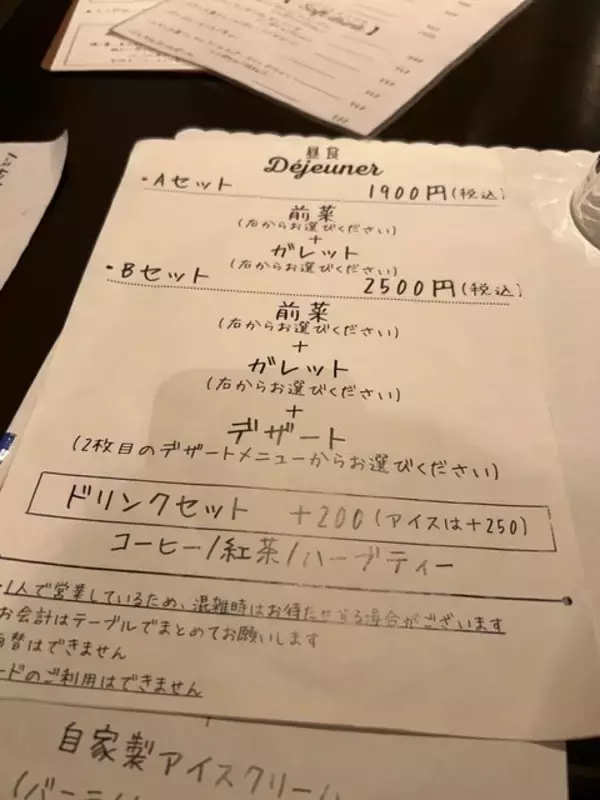 Soft drink】
昼食
Déjeuner
・Aセット 1900円(税込)
前菜
(右からお選びください)
+
ガレット
(右からお選びください)
・Bセット 2500円(税込)
前菜
(右からお選びください)
+
ガレット
(右からお選びください)
+
デザート
(2枚目のデザートメニューからお選びください)
ドリンクセット +200(アイスは+250)
コーヒー/紅茶/ハーブティー
・1人で営業しているため、混雑時はお待たせする場合がございます
お会計はテーブルでまとめてお願いします
両替はできません
ードのご利用はできません
自家製アイスクリーム
(バニ